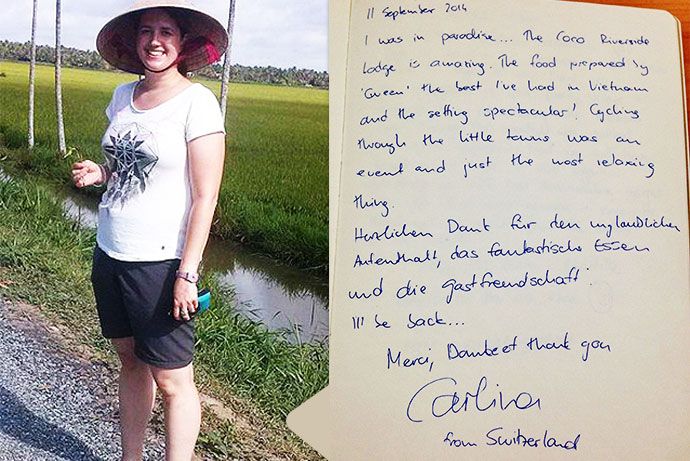 11 September 2014
I was in paradise... The Coco Riverside
lodge is amazing. The food prepared by
'Queen' the best I've had in Vietnam
and the setting spectacular! Cycling
through the little towns was an
event and just the most relaxing
thing.
Herzlichen Dank für den unglaublichen
Aufenthalt, das fantastische Essen
und die gastfreundschaft.
I'll be back...
Merci, Danke et thank you
Carlina
from Switzerland